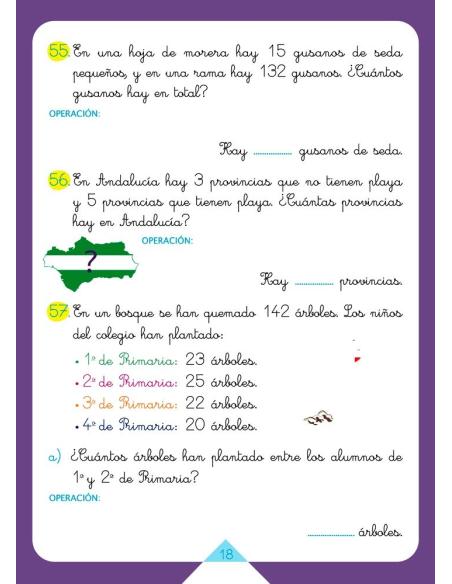 55. En una hoja de morera hay 15 gusanos de seda
pequeños, y en una rama hay 132 gusanos. ¿Cuántos
gusanos hay en total?
OPERACIÓN:
Hay ............... gusanos de seda.
56. En Andalucía hay 3 provincias que no tienen playa
y 5 provincias que tienen playa. ¿Cuántas provincias
hay en Andalucía?
OPERACIÓN:
?
Hay ............... provincias.
57. En un bosque se han quemado 142 árboles. Los niños
del colegio han plantado:
• 1º de Primaria: 23 árboles.
• 2º de Primaria: 25 árboles.
• 3º de Primaria: 22 árboles.
• 4º de Primaria: 20 árboles.
a) ¿Cuántos árboles han plantado entre los alumnos de
1º y 2º de Primaria?
OPERACIÓN:
.................. árboles.
18